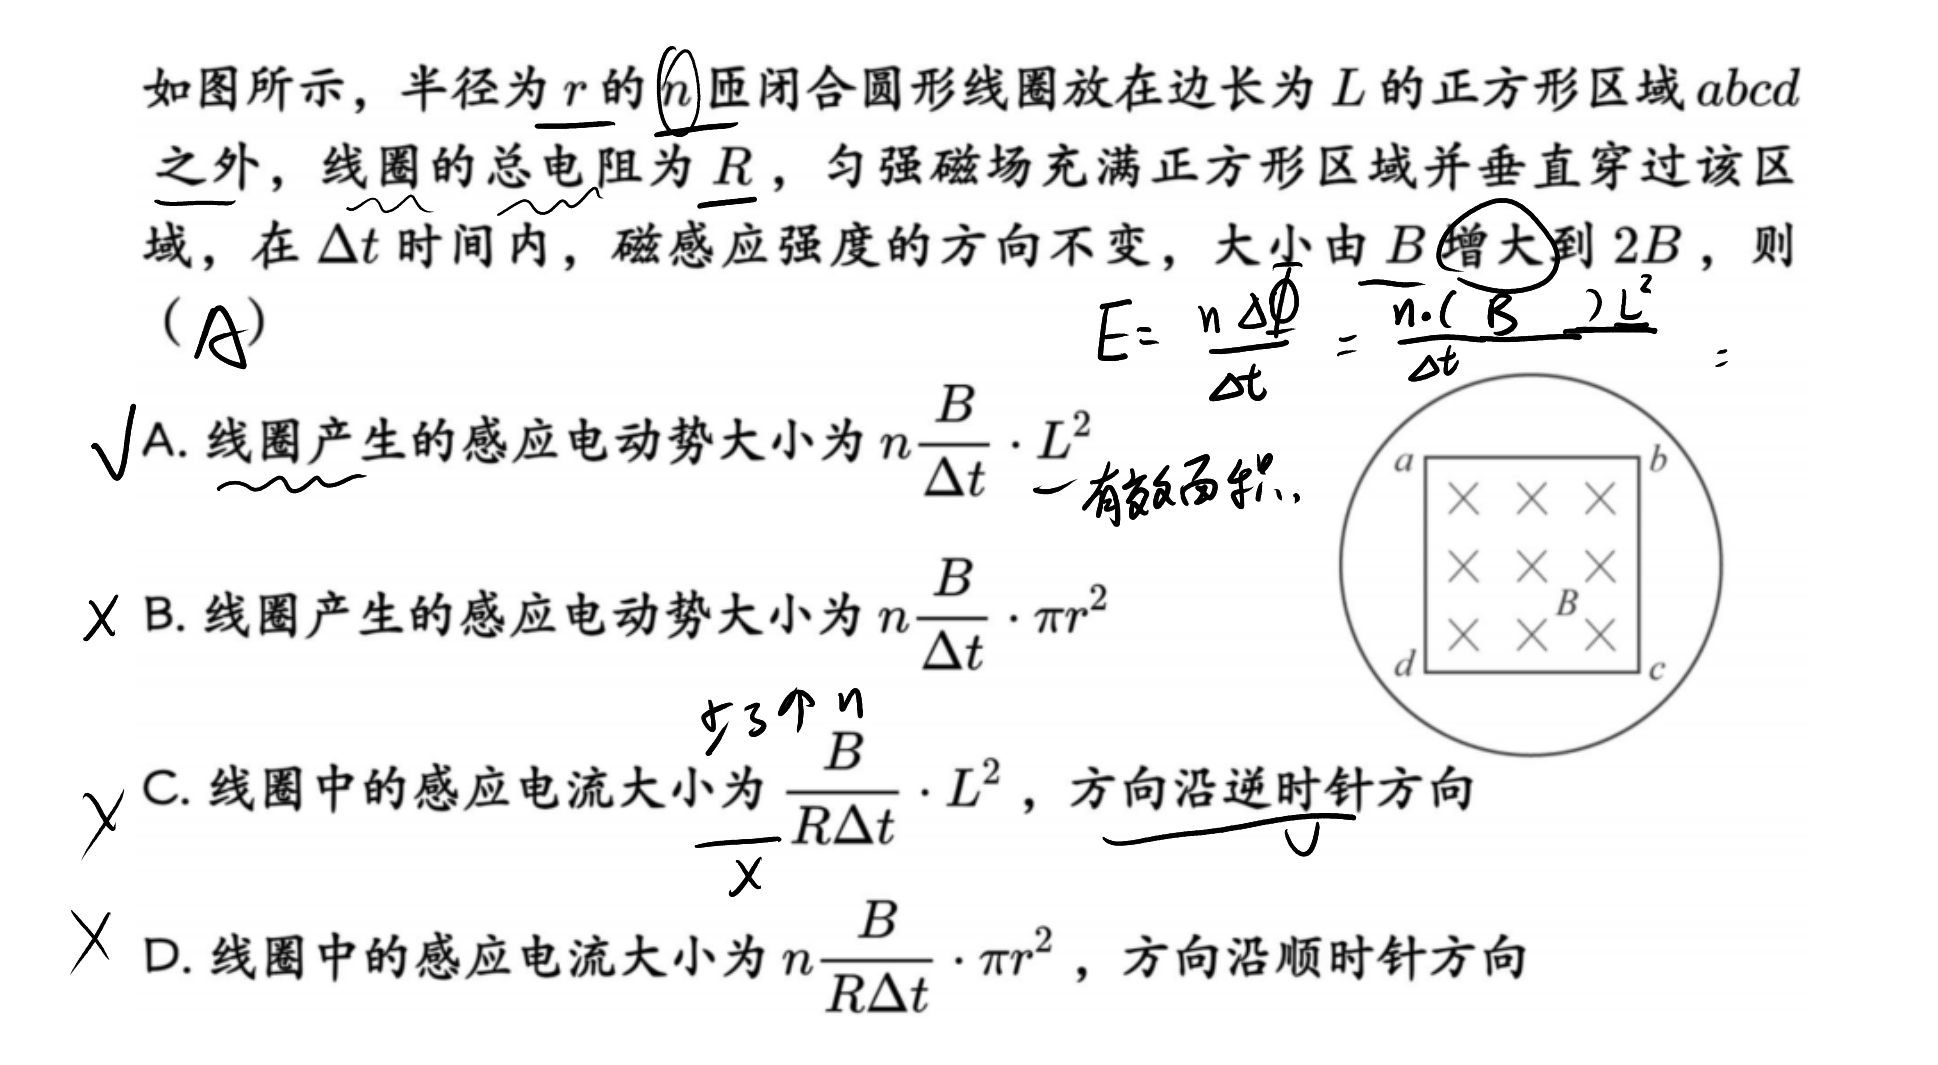 如图所示，半径为 r 的 n 匝闭合圆形线圈放在边长为 L 的正方形区域 abcd
之外，线圈的总电阻为 R，匀强磁场充满正方形区域并垂直穿过该区
域，在 Δt 时间内，磁感应强度的方向不变，大小由 B 增大到 2B，则
（A）
E = nΔΦ/Δt = n·(B )L²/Δt =
√ A. 线圈产生的感应电动势大小为 n B/Δt · L²
有效面积.
a b
× B. 线圈产生的感应电动势大小为 n B/Δt · πr²
B
d c
少了个 n
× C. 线圈中的感应电流大小为 B/RΔt · L²，方向沿逆时针方向
× √
× D. 线圈中的感应电流大小为 n B/RΔt · πr²，方向沿顺时针方向